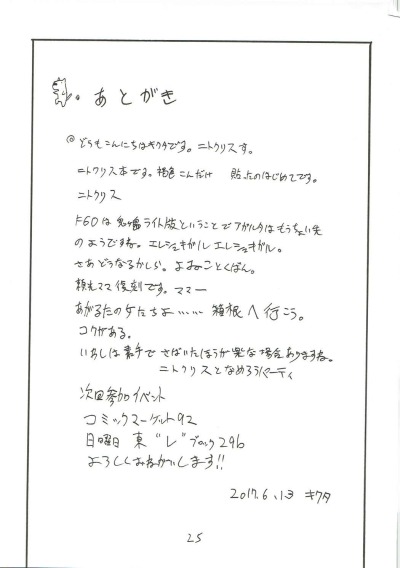 あとがき
@どうもこんにちはキクタです。ニトクリスす。
ニトクリス本です。褐色こんだけ 貼ったのはじめてです。
ニトクリス
FGOは鬼ヶ島ライト版ということでアガルタはもうちょい先
のようですね。エレシュキガルエレシュキガル。
さあどうなるかしら。よみのことくばん。
頼光ママ復刻です。ママー
あがるたの女たちよ…… 箱根へ行こう。
コクがある。
いわしは素手でさばいたほうが楽な場合ありますね。
ニトクリスとなめろうパーティ
次回参加イベント
コミックマーケット92
日曜日 東"レ"ブロック29b
よろしくおねがいします!!
2017.6.13 キクタ
25